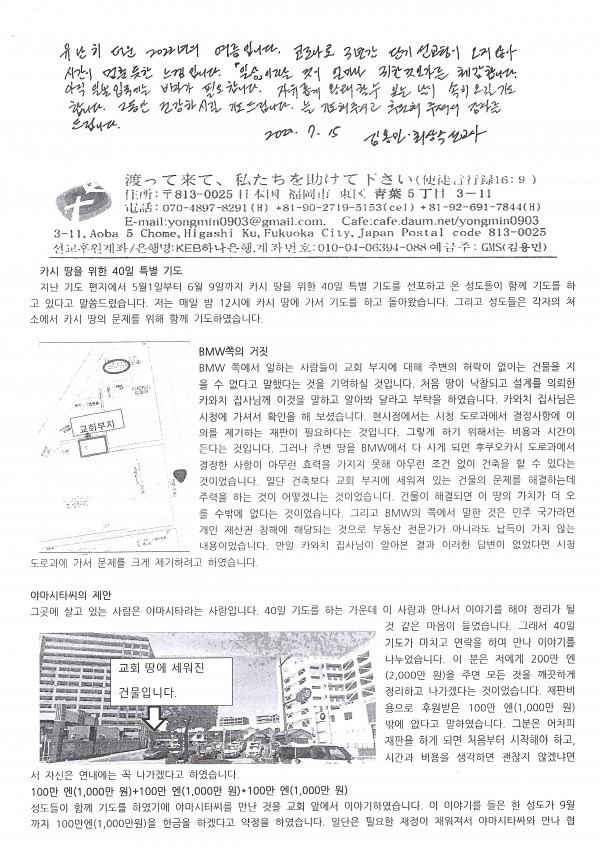 유난히 더운 2022년의 여름입니다. 코로나로 3년간 단기선교팀이 오지 않아
시간이 멈춘듯한 느낌입니다. "일상"이라는 것이 얼마나 귀한 것인가를 체감합니다.
아직 일본 입국에는 비자가 필요합니다. 자유롭게 왕래할 수 있는 날이 속히 오길 기도
합니다. 그동안 건강하시길 기도드립니다. 늘 기도해주시고 후원해 주셔서 감사를
드립니다. 2022. 7. 15 김용민·최상숙 선교사
渡って来て、私たちを助けて下さい(使徒言行録16:9)
住所:〒813-0025 日本国 福岡市 東区 青葉 5丁目 3-11
電話: 070-4897-8291(H) +81-90-2719-5153(cel) +81-92-691-7844(H)
E-mail:yongmin0903@gmail.com, Cafe:cafe.daum.net/yongmin0903
3-11, Aoba 5 Chome, Higashi Ku, Fukuoka City, Japan Postal code 813-0025
선교후원계좌/은행명:KEB하나은행.계좌번호:010-04-06394-088 예금주: GMS(김용민)
카시 땅을 위한 40일 특별 기도
지난 기도 편지에서 5월1일부터 6월 9일까지 카시 땅을 위한 40일 특별 기도를 선포하고 온 성도들이 함께 기도를 하
고 있다고 말씀드렸습니다. 저는 매일 밤 12시에 카시 땅에 가서 기도를 하고 돌아왔습니다. 그리고 성도들은 각자의 처
소에서 카시 땅의 문제를 위해 함께 기도하였습니다.
교회부지
BMW쪽의 거짓
BMW 쪽에서 일하는 사람들이 교회 부지에 대해 주변의 허락이 없이는 건물을 지
을 수 없다고 말했다는 것을 기억하실 것입니다. 처음 땅이 낙찰되고 설계를 의뢰한
카와치 집사님께 이것을 말하고 알아봐 달라고 부탁을 하였습니다. 카와치 집사님은
시청에 가셔서 확인을 해 보셨습니다. 현시점에서는 시청 도로과에서 결정사항에 이
의를 제기하는 재판이 필요하다는 것입니다. 그렇게 하기 위해서는 비용과 시간이
든다는 것입니다. 그러나 주변 땅을 BMW에서 다 사게 되면 후쿠오카시 도로과에서
결정한 사항이 아무런 효력을 가지지 못해 아무런 조건 없이 건축을 할 수 있다는
것이었습니다. 일단 건축보다 교회 부지에 세워져 있는 건물의 문제를 해결하는데
주력을 하는 것이 어떻겠냐는 것이었습니다. 건물이 해결되면 이 땅의 가치가 더 오
를 수밖에 없다는 것이었습니다. 그리고 BMW의 쪽에서 말한 것은 민주 국가라면
개인 재산권 침해에 해당되는 것으로 부동산 전문가가 아니라도 납득이 가지 않는
내용이었습니다. 만일 카와치 집사님이 알아본 결과 이러한 답변이 없었다면 시청
도로과에 가서 문제를 크게 제기하려고 하였습니다.
야마시타씨의 제안
그곳에 살고 있는 사람은 야마시타라는 사람입니다. 40일 기도를 하는 가운데 이 사람과 만나서 이야기를 해야 정리가 될
것 같은 마음이 들었습니다. 그래서 40일
기도가 마치고 연락을 하여 만나 이야기를
나누었습니다. 이 분은 저에게 200만 엔
(2,000만 원)을 주면 모든 것을 깨끗하게
정리하고 나가겠다는 것이었습니다. 재판비
용으로 후원받은 100만 엔(1,000만 원)
밖에 없다고 말하였습니다. 그분은 어차피
재판을 하게 되면 처음부터 시작해야 하고,
시간과 비용을 생각하면 괜찮지 않겠냐면
서 자신은 연내에는 꼭 나가겠다고 하였습니다.
교회 땅에 세워진
건물입니다.
100만 엔(1,000만 원)+100만 엔(1,000만 원)*100만 엔(1,000만 원)
성도들이 함께 기도를 하였기에 야마시타씨를 만난 것을 교회 앞에서 이야기하였습니다. 이 이야기를 들은 한 성도가 9월
까지 100만엔(1,000만원)을 헌금을 하겠다고 약정을 하였습니다. 일단은 필요한 재정이 채워져서 야마시타씨와 만나 협